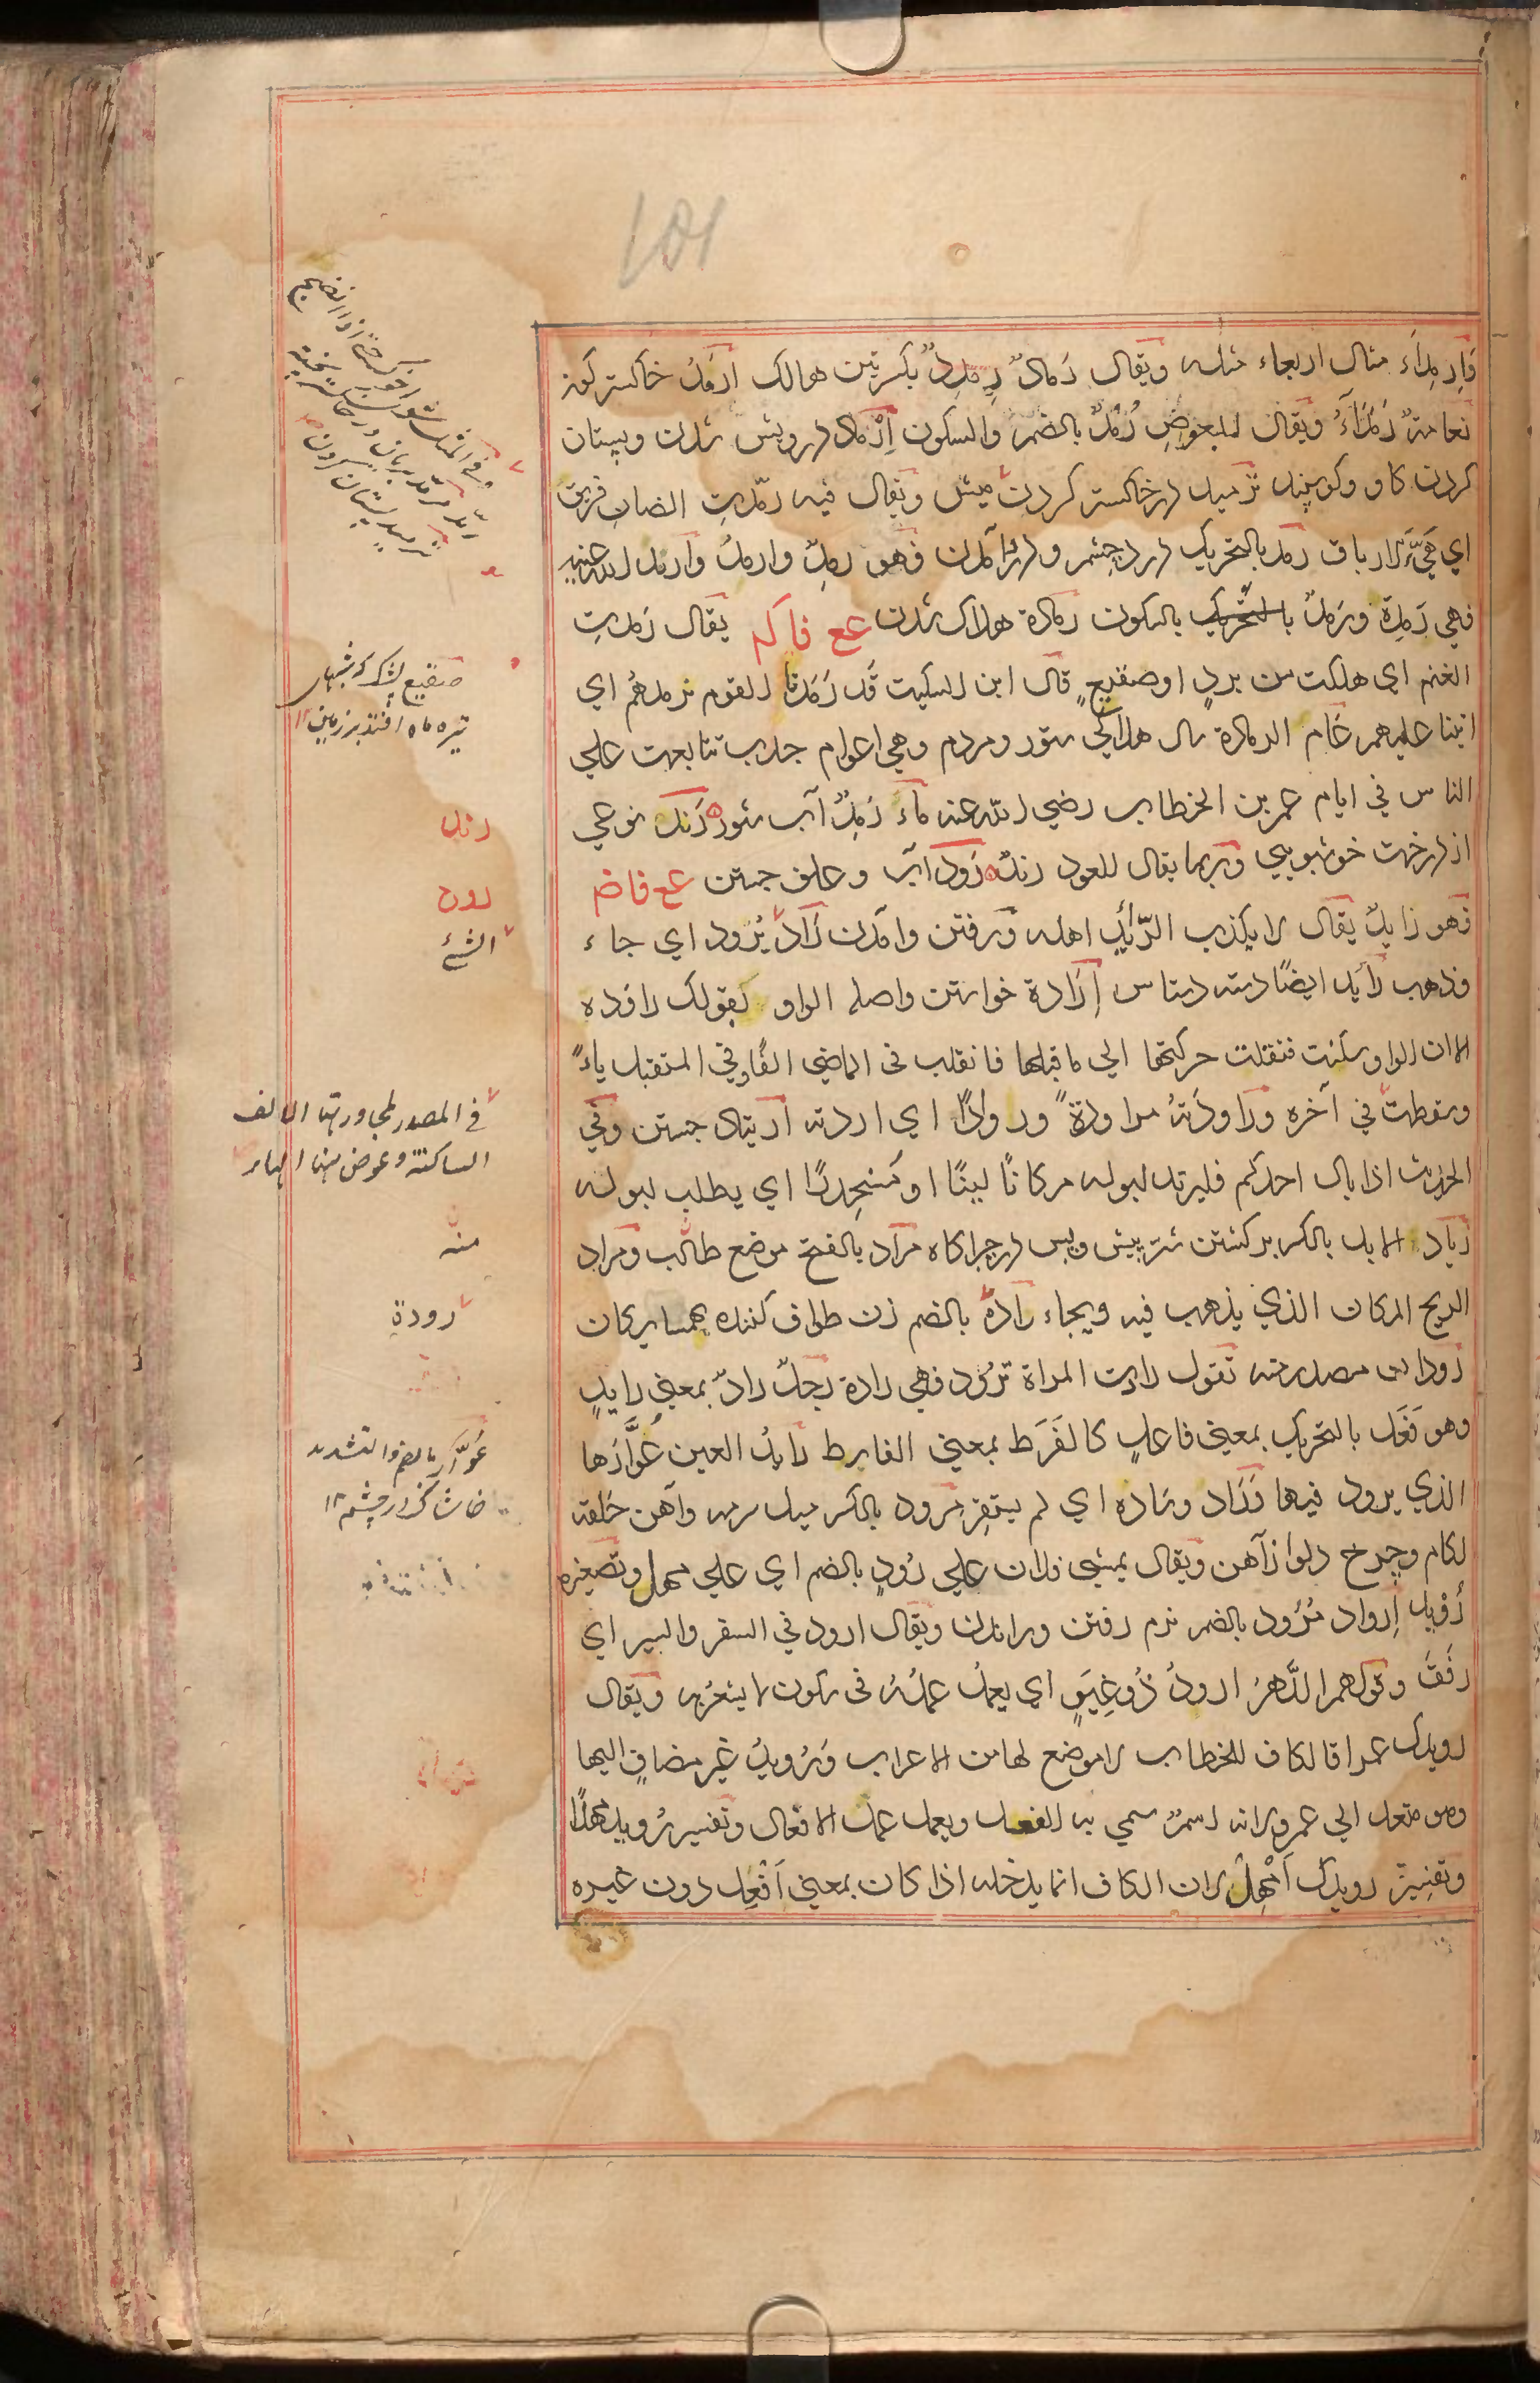 وَاِرمِدَاء مثال اربعاء مثله ويقال رَمادٌ رِمدِدٌ بكسرتين هوالك ارمد خاكستر كونه
نعامةٌ رَمْدَآءُ ويقال للبعوضِ رُمْدٌ بالضم والسكون اِرماد درويش شدن وپستان
كردن كاو وكوسپند ترميد در خاكستر كردن مثل ويقال فيه رمّدتِ الضان فربق
اي هَيِّءِ الارباق رمد بالتحريك درد چشم ودرد آمدن فهو رمِدٌ وارمدُ وارمد الله عينه
فهي رَمِدَة ورَمدٌ بالتحريك بالسكون رمادة هلاك شدن عع فاكم يقال رَمدتِ
الغنم اي هلكت من بردٍ اوصقيعٍ قال ابن السكيت قد رَمَدنا القوم نرمدهُم اي
اتينا عليهم عَام الرمادة سال هلاكي ستور ومردم وهي اعوام جدب تتابعت علي
الناس في ايام عمر بن الخطاب رضي الله عنه ماء رَمِدٌ آب شور رَند نوعي
از درخت خوشبويي وربما يقال للعود رند رَود آب وعلف جستن عع فاضم
فهو رايدٌ يقال لا يكذب الرّائِد اهله ورفتن وآمدن رَادَ يَرود اي جاء
وذهب رايد ايضًا دسته دستاس اِرَادة خواستن واصله الواو كقولك راوده
الا ان الواو سكنت فنقلت حركتها الي ما قبلها فانقلب في الماضي الفًا وفي المستقبل ياءً
وسقطت في آخره وراودَتهُ مراودةً وروادًا اي اردته ارتياد جستن وفي
الحديث اذا بال احدكم فليرتد لبوله مكانًا لينًا اومُنحدِرًا اي يطلب لبوله
رياد الابل بالكسر بركشتن شتر پيش وپس در چراكاه مراد بالفتح موضع طالب ومراد
الريح المكان الذي يذهب فيه ويجاء رادة بالضم زن طواف كننده بهمسايكان
رَودان مصدر منه تقول رادت المراة ترود فهي رادة رجلٌ رادٌ بمعني رايدٍ
وهو فَعَل بالتحريك بمعني فاعلٍ كالفَرَط بمعني الفارط رايدُ العين عُوَّارُها
الذي يرود فيها وَرَاد وساده اي لم يستقِر مِرود بالكسر ميل سرمه وآهن حلقه
لكام وچرخ دلو از آهن ويقال يمشي فلان علي رُودٍ بالضم اي علي مهل وتصغيره
رُوَيد اِرواد مُرْوَد بالضم نرم رفتن وراندن ويقال ارود في السفر والسير اي
رَفَقَ وقولهم الدَّهرُ ارودُ ذُو غِيَرٍ اي يعملُ عملَهُ في سكون لا يشعر به ويقال
رويدك عمرا فالكاف للخطاب لا موضع لها من الاعراب ورُويد غير مضافٍ اليها
وهو متعد الي عمرو لانه اسمٌ سمي به الفعل ويعمل عمل الافعال وتفسير رُويد مهلًا
وتفسير رويدك اَمْهِلْ لان الكاف انما يدخله اذا كان بمعني اَفْعِل دون غيره
صقيع پشك كه شبهاى
تيره ماه افتد بر زمين ١٢
رند
رود
الشئ
في المصدر لمجاورتها الالف
الساكنة وعوض منها الهاء
منه
رودة
عُوّار بالضم والتشديد
خاشاك در چشم ١٢